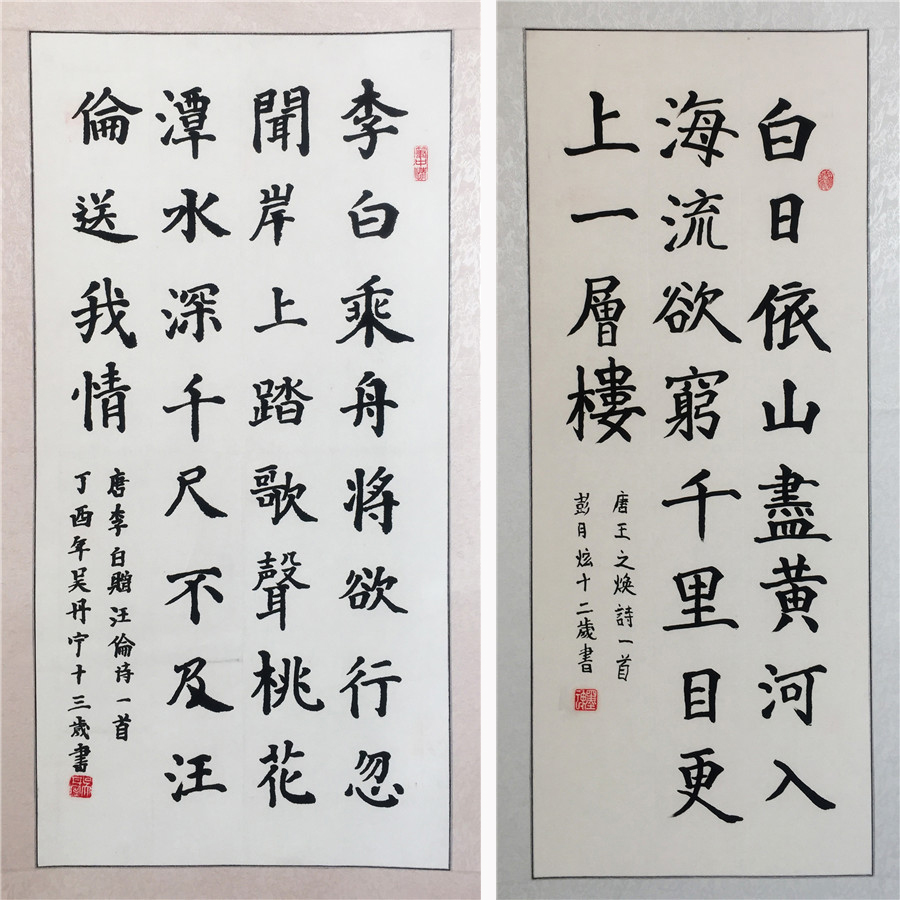 李白乘舟將欲行忽
聞岸上踏歌聲桃花
潭水深千尺不及汪
倫送我情
唐李白贈汪倫诗一首
丁酉年吴丹宁十三歲書
白日依山盡黄河入
海流欲窮千里目更
上一層樓
唐王之焕詩一首
彭月炫十二歲書